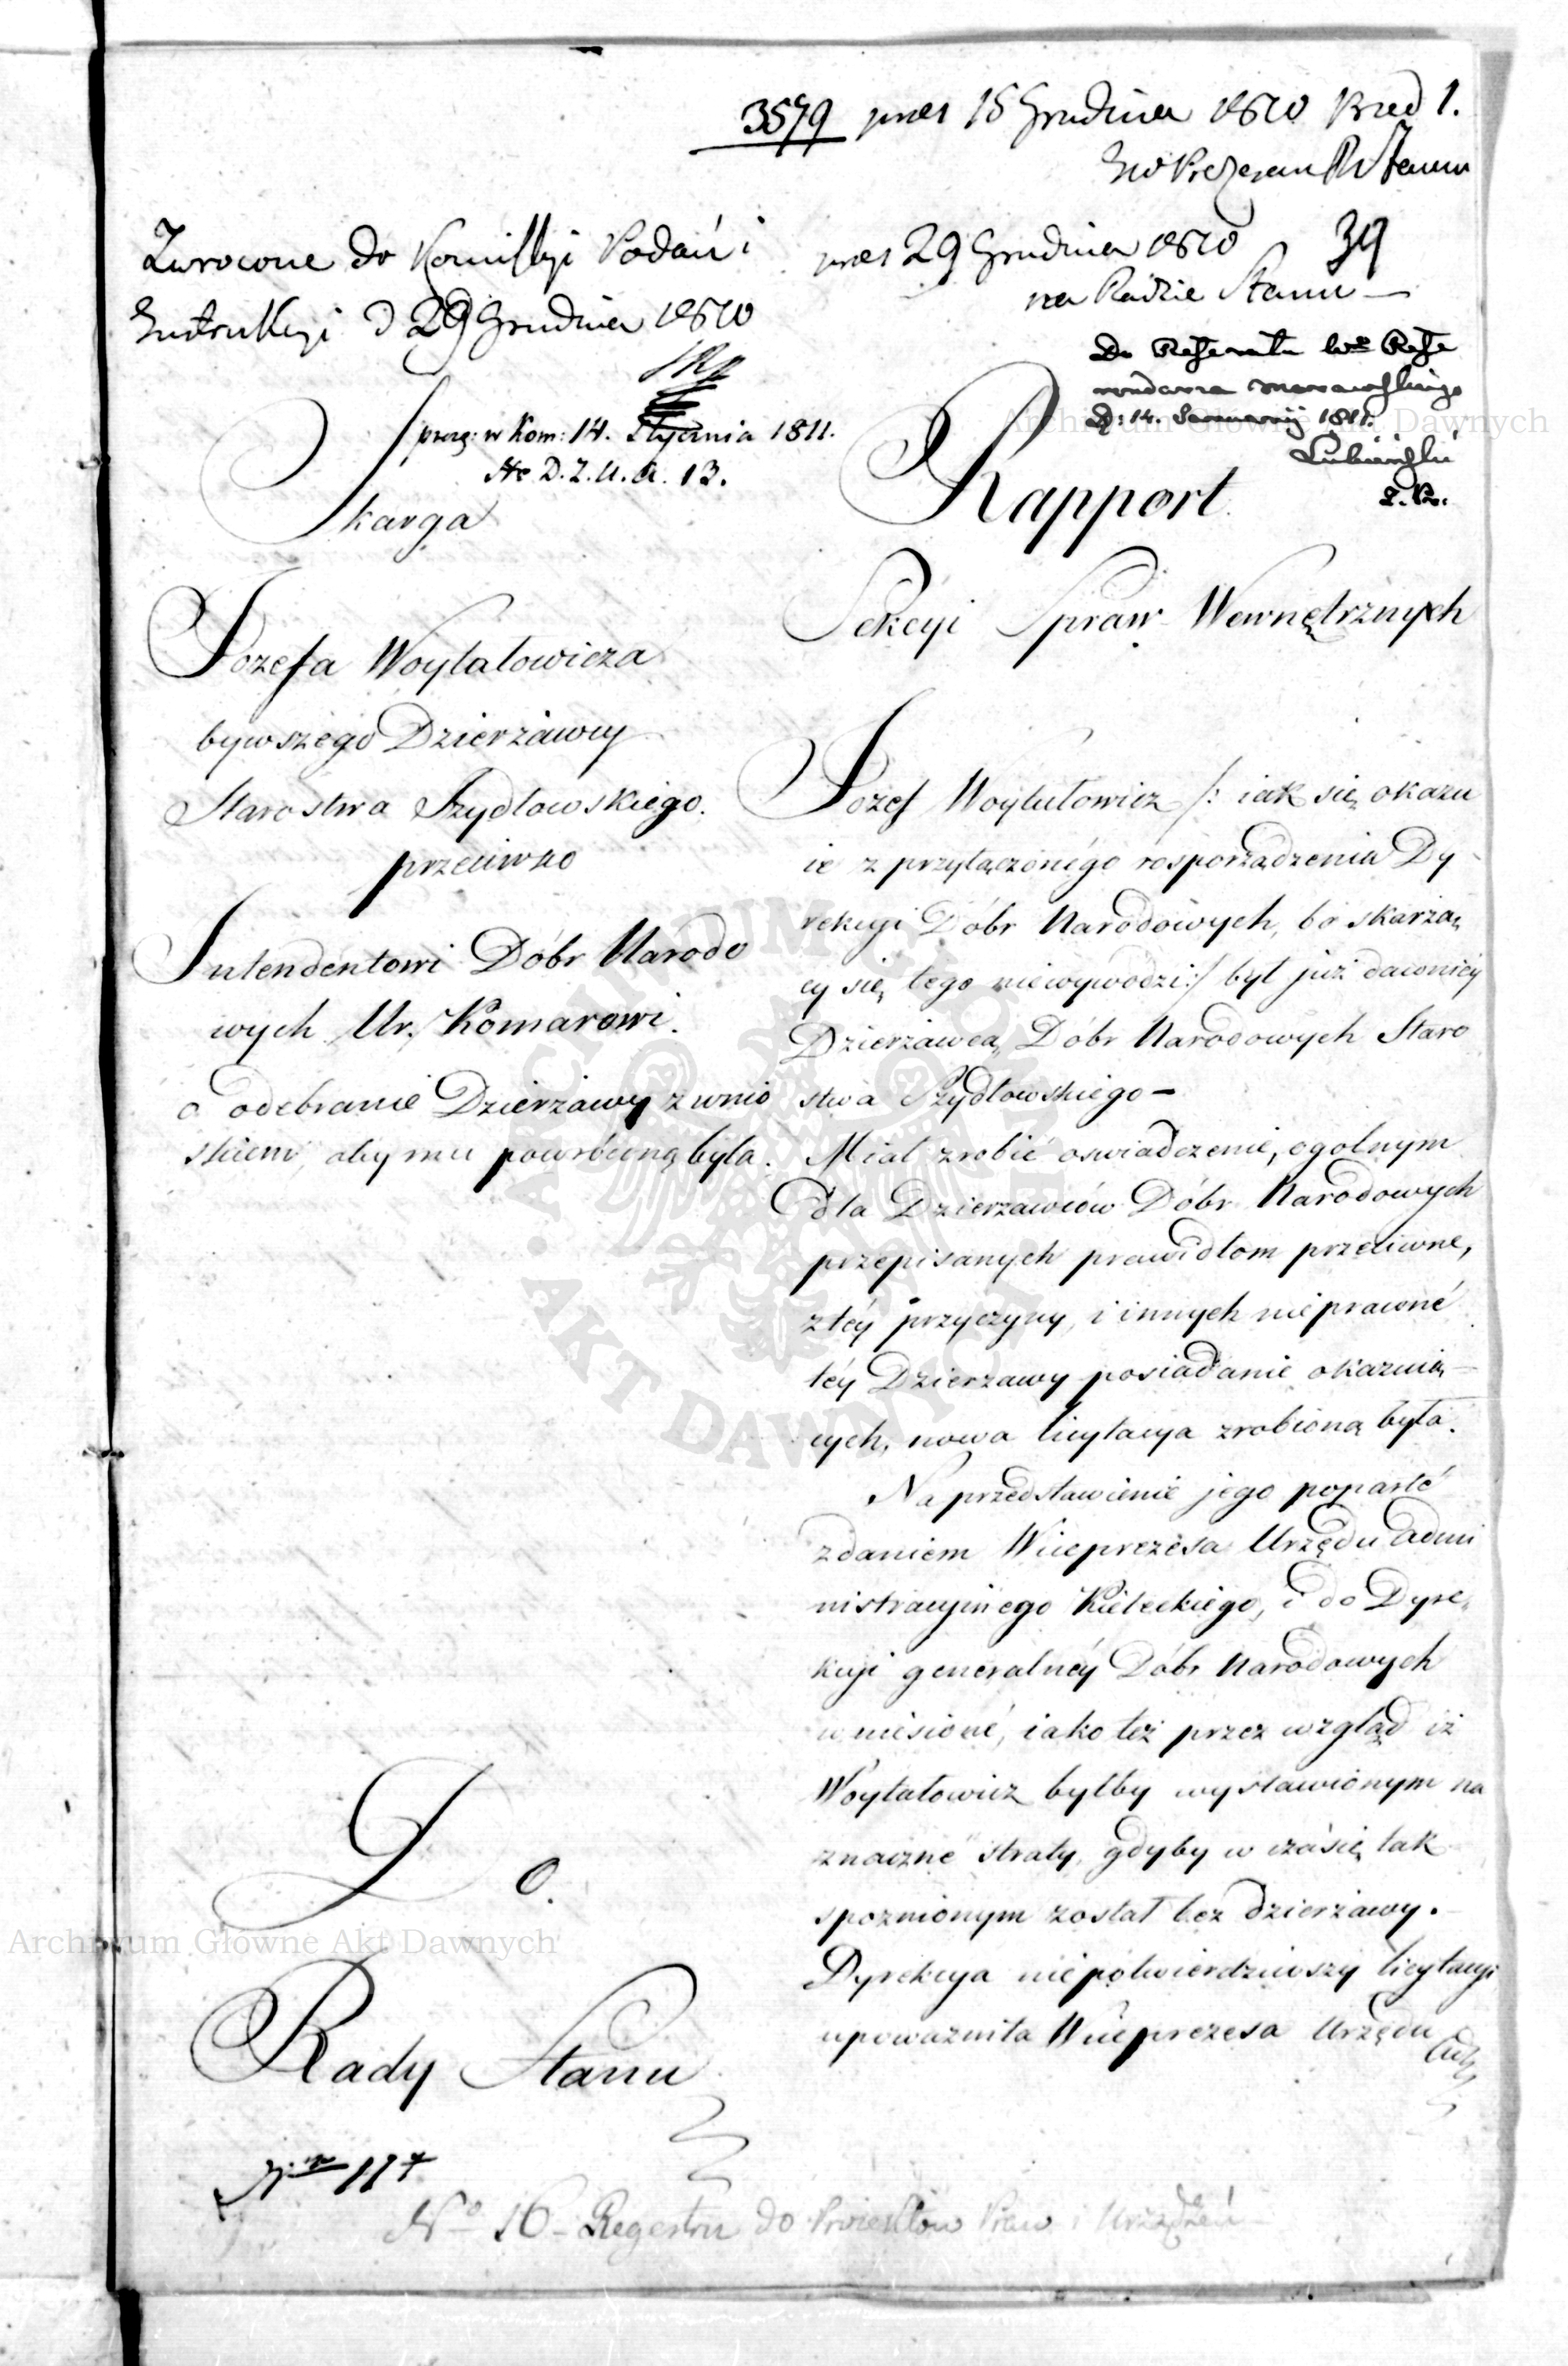 3579 pres 15 Grudnia 1810 Bred 1.
39
Zwrocone do Komissyi Podań i
Instrukcyi d 29 Grudnia 1810
pres 29 Grudnia 1810
na Radzie Stanu
Do Referatu
d: 14. Januarij 1811.
Łubieński
prez: w Kom: 14. Stycznia 1811.
No D. Z. U. a. 13.
Skarga
Jozefa Woytatowicza
bywszego Dzierżawcy
Starostwa Szydłowskiego.
przeciwko
Intendentowi Dóbr Narodo
wych Ur. Komarowi.
o odebranie Dzierżawy z wnio
skiem, aby mu powróconą była.
Do.
Rady Stanu
Nr 117
No 16 Regestru do Proiektow Praw i Urządzeń
Rapport.
Sekcyi Spraw Wewnętrznych
Jozef Woytutowicz /: iak się okazu
ie z przyłączonégo rosporządzenia Dy
rekcyi Dóbr Narodowych, bo skarżą
cy się tego niewywodzi :/ był już dawniéy
Dzierżawcą Dóbr Narodowych Staro
stwa Szydłowskiego -
Miał zrobić oswiadczenie, ogolnym
dla Dzierzawców Dóbr Narodowych
przepisanych prawidłom przeciwne,
z téy przyczyny, i innych nieprawné
téy Dzierzawy posiadanie okazuią
cych, nowa licytacya zrobioną była.
Na przedstawienie jego poparté
zdaniem Wiceprezesa Urzędu Admi
nistracyinego Kieleckiego, i do Dyre
kcyi generalnéy Dóbr Narodowych
wniesioné, iako też przez wzgląd iż
Woytatowicz byłby wystawionym na
znaczne straty, gdyby w czasie tak
spoznionym został bez dzierżawy.
Dyrekcya niepotwierdziwszy licytacyi
upoważniła Wiceprezesa Urzędu
Adm
Archiwum Główne Akt Dawnych
Archiwum Główne Akt Dawnych
ARCHIWUM GŁÓWNE · AKT DAWNYCH ·